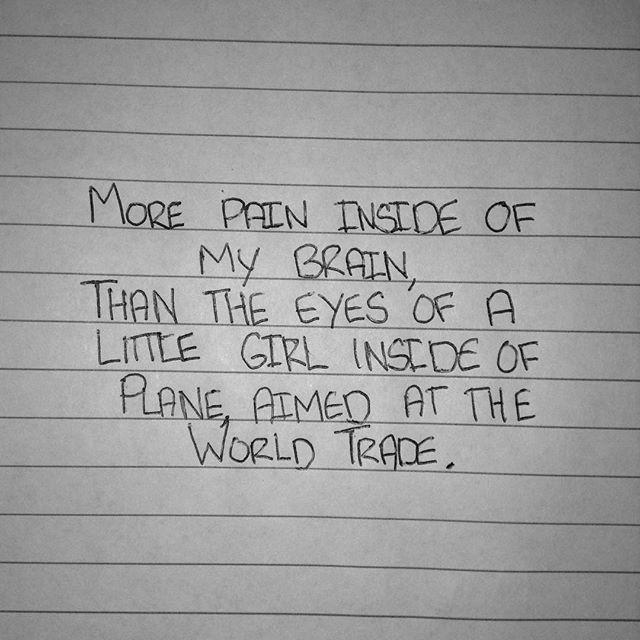 MORE PAIN INSIDE OF
MY BRAIN,
THAN THE EYES OF A
LITTLE GIRL INSIDE OF
PLANE, AIMED AT THE
WORLD TRADE.